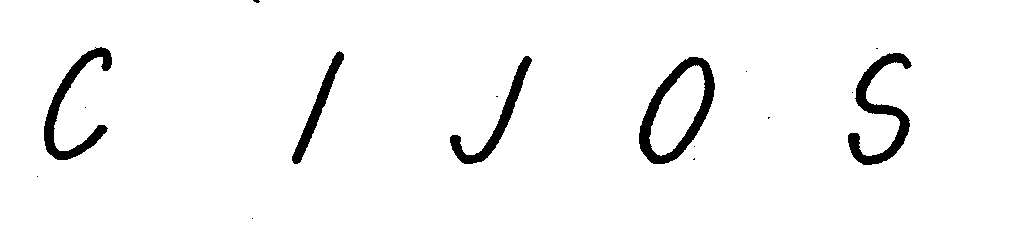 C I J O S